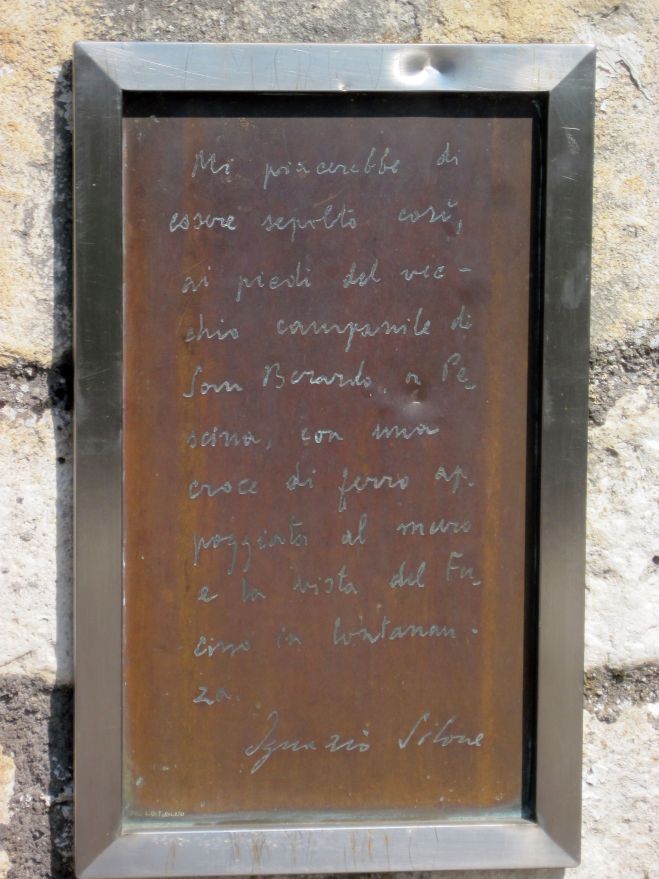 Mi piacerebbe di
essere sepolto così,
ai piedi del vec-
chio campanile di
San Berardo, a Pe-
scina, con una
croce di ferro ap-
poggiata al muro
e la vista del Fu-
cino in lontanan-
za.
Ignazio Silone